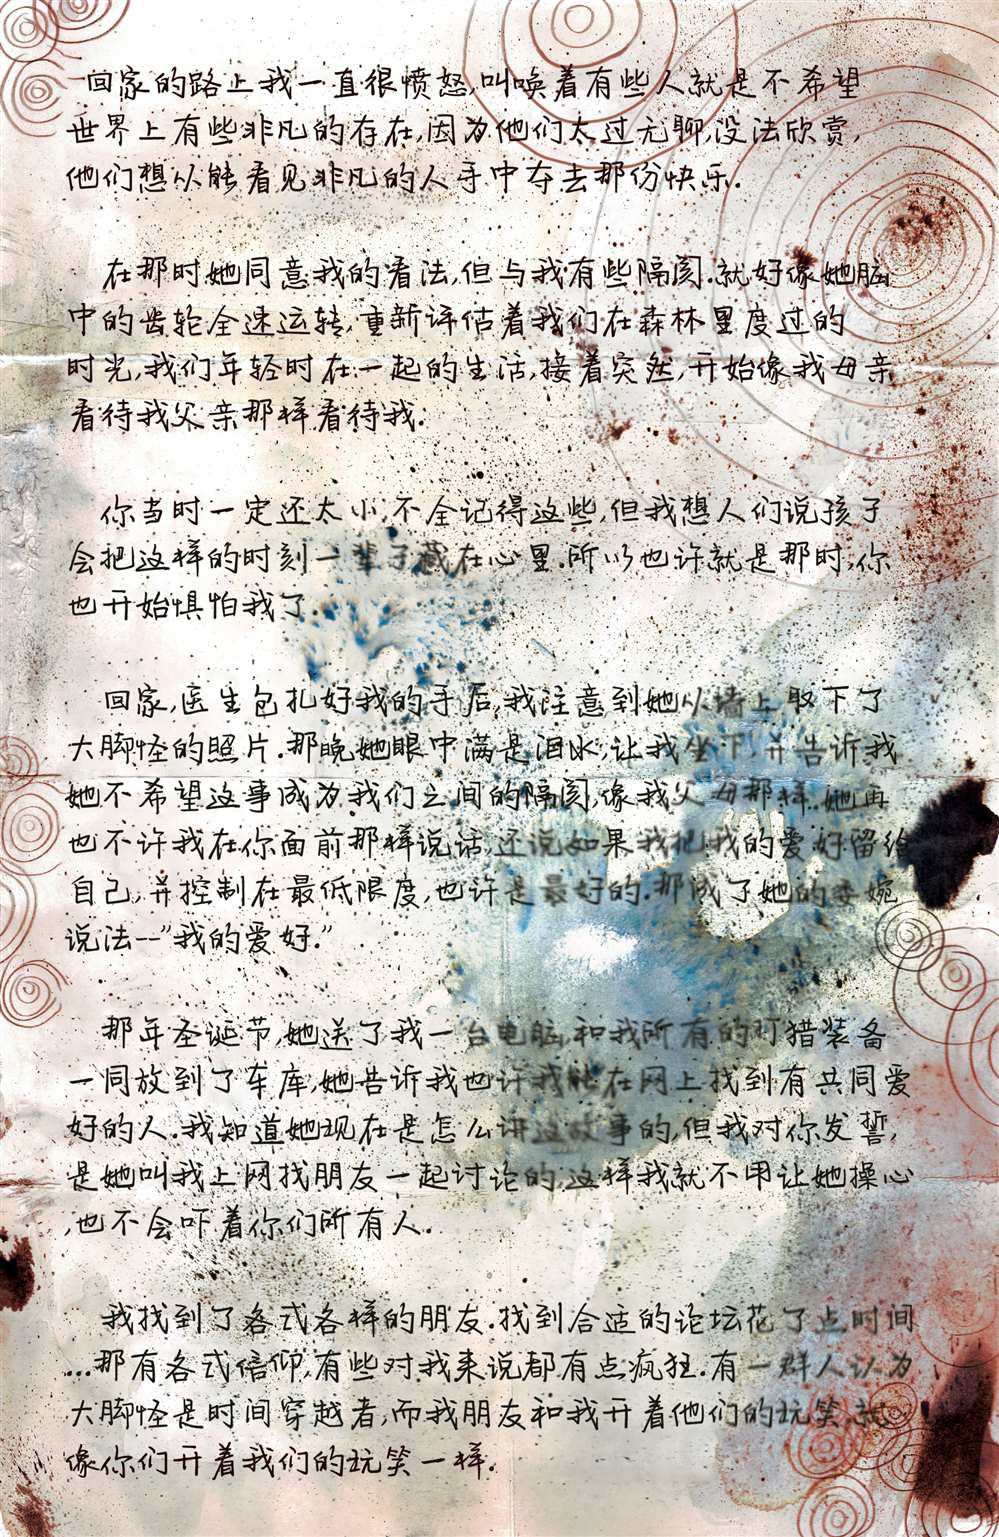 回家的路上我一直很愤怒,叫唤着有些人就是不希望
世界上有些非凡的存在,因为他们太过无聊,没法欣赏,
他们想从能看见非凡的人手中夺去那份快乐.
在那时她同意我的看法,但与我有些隔阂.就好像她脑
中的齿轮全速运转,重新评估着我们在森林里度过的
时光,我们年轻时在一起的生活,接着突然,开始像我母亲
看待我父亲那样看待我.
你当时一定还太小,不全记得这些,但我想人们说孩子
会把这样的时刻一辈子藏在心里.所以也许就是那时,你
也开始惧怕我了.
回家,医生包扎好我的手后,我注意到她从墙上取下了
大脚怪的照片.那晚她眼中满是泪水,让我坐下,并告诉我
她不希望这事成为我们之间的隔阂,像我父母那样.她再
也不许我在你面前那样说话,还说如果我把我的爱好留给
自己,并控制在最低限度,也许是最好的.那成了她的委婉
说法--"我的爱好."
那年圣诞节,她送了我一台电脑,和我所有的打猎装备
一同放到了车库,她告诉我也许我能在网上找到有共同爱
好的人.我知道她现在是怎么讲这故事的,但我对你发誓,
是她叫我上网找朋友一起讨论的,这样我就不用让她操心
,也不会吓着你们所有人.
我找到了各式各样的朋友.找到合适的论坛花了点时间
...那有各式信仰,有些对我来说都有点疯狂.有一群人认为
大脚怪是时间穿越者,而我朋友和我开着他们的玩笑,就
像你们开着我们的玩笑一样.